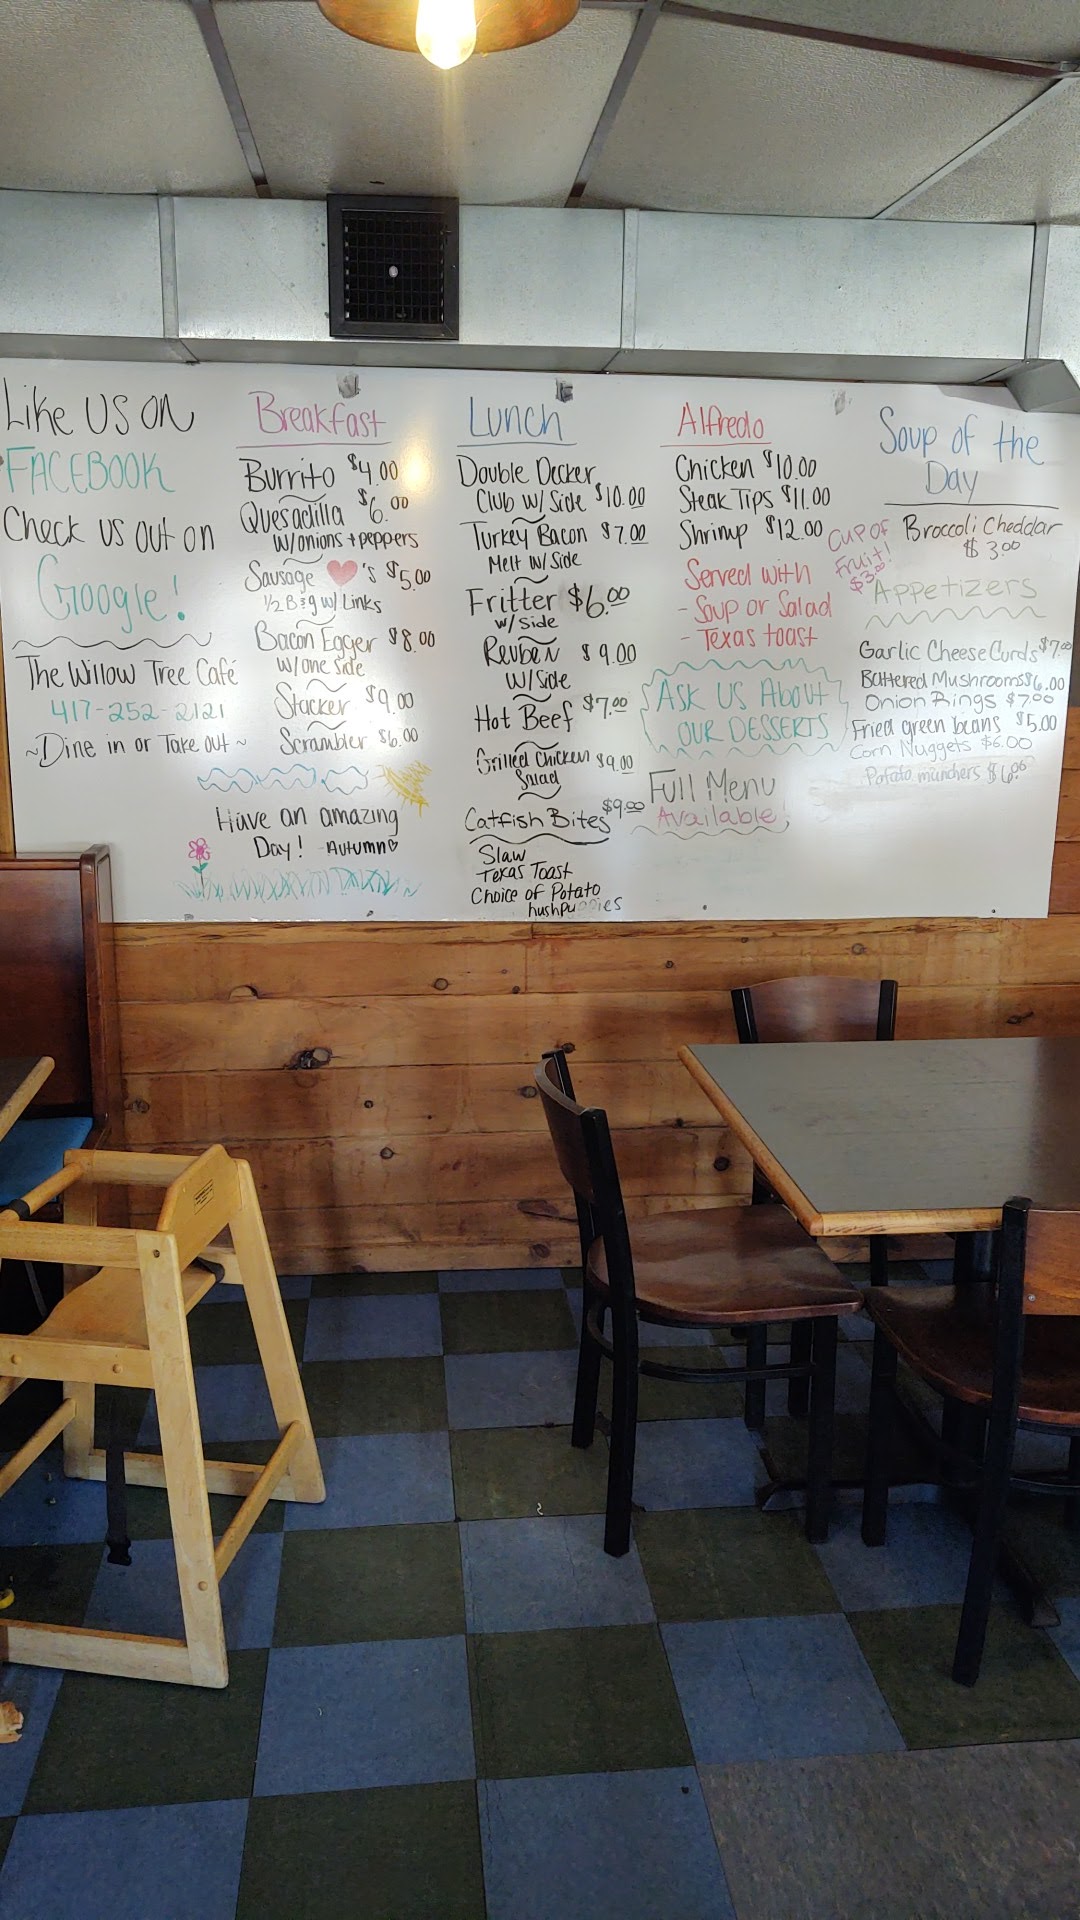 Like us on
FACEBOOK
Check us out on
Google!
The Willow Tree Café
417-252-2121
~Dine in or Take out~
Breakfast
Burrito $4.00
Quesadilla $6.00
w/onions + peppers
Sausage ❤'s $5.00
1/2 B+g w/ Links
Bacon Egger $8.00
w/one side
Stacker $9.00
Scrambler $6.00
Have an amazing
Day! -Autumn♡
Lunch
Double Decker
Club w/ Side $10.00
Turkey Bacon $7.00
Melt w/ Side
Fritter $6.00
w/side
Reuben $9.00
w/side
Hot Beef $7.00
Grilled Chicken $9.00
Salad
Catfish Bites $9.00
Slaw
Texas Toast
Choice of Potato
hushpuppies
Alfredo
Chicken $10.00
Steak Tips $11.00
Shrimp $12.00
Served with
- Soup or Salad
- Texas toast
Ask us About
our DESSERTS
Full Menu
Available!
Cup of
Fruit!
$3.00
Soup of the
Day
Broccoli Cheddar
$3.00
Appetizers
Garlic Cheese Curds $7.00
Battered Mushrooms $6.00
Onion Rings $7.00
Fried green beans $5.00
Corn Nuggets $6.00
Potato munchers $6.00